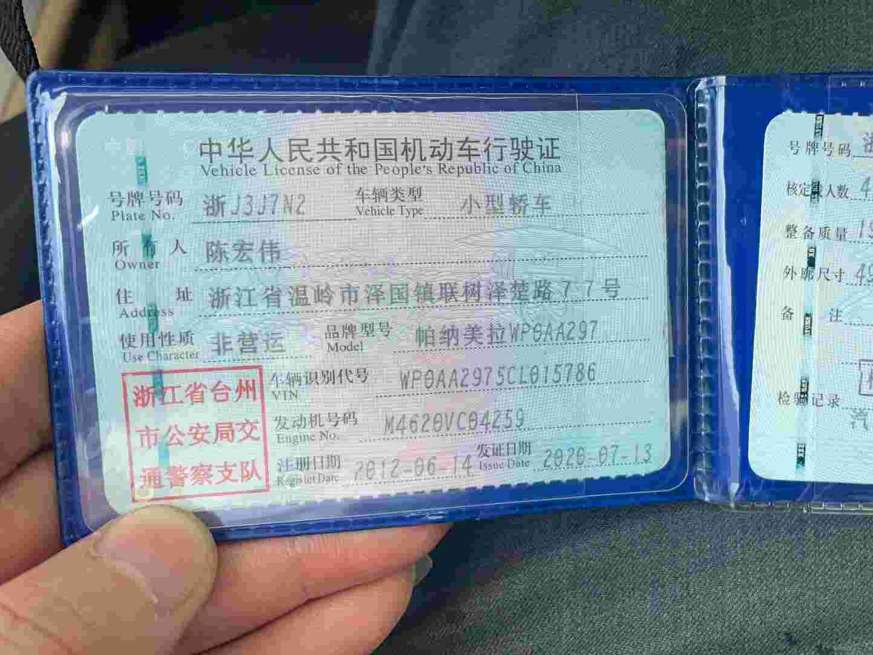 中华人民共和国机动车行驶证
Vehicle License of the People's Republic of China
号牌号码 浙J3J7N2 车辆类型 小型轿车
Plate No. Vehicle Type
所有人 陈宏伟
Owner
住址 浙江省温岭市泽国镇联树泽楚路77号
Address
使用性质 非营运 品牌型号 帕纳美拉WP0AA297
Use Character Model
浙江省台州
市公安局交
通警察支队
车辆识别代号 WP0AA2975CL015786
VIN
发动机号码 M4620VC04259
Engine No.
注册日期 2012-06-14 发证日期 2020-07-13
Register Date Issue Date
号牌号码 浙
核定人数
整备质量
外廓尺寸
备注
检验记录